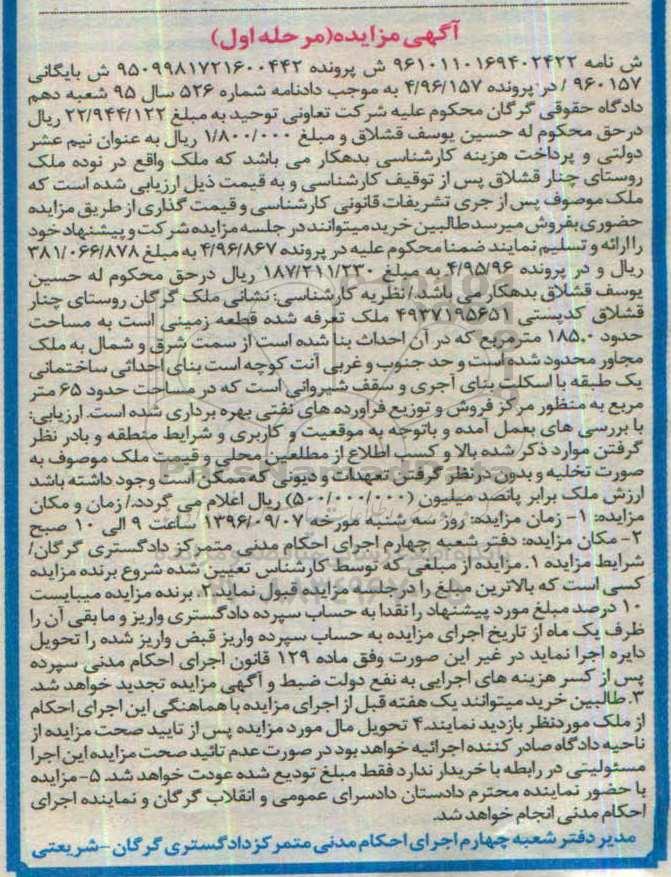 آگهی مزایده(مرحله اول)
ش نامه ۹۶۱۰۱۱۰۱۶۹۴۰۲۴۲۲ ش پرونده ۹۵۰۹۹۸۱۷۲۱۶۰۰۴۴۲ ش بایگانی
۹۶۰۱۵۷ / در پرونده ۴/۹۶/۱۵۷ به موجب دادنامه شماره ۵۲۶ سال ۹۵ شعبه دهم
دادگاه حقوقی گرگان محکوم علیه شرکت تعاونی توحید به مبلغ ۲۲/۹۴۴/۱۲۲ ریال
درحق محکوم له حسین یوسف قشلاق و مبلغ ۱/۸۰۰/۰۰۰ ریال به عنوان نیم عشر
دولتی و پرداخت هزینه کارشناسی بدهکار می باشد که ملک واقع در نوده ملک
روستای چنار قشلاق پس از توقیف کارشناسی و به قیمت ذیل ارزیابی شده است که
ملک موصوف پس از جری تشریفات قانونی کارشناسی و قیمت گذاری از طریق مزایده
حضوری بفروش میرسد طالبین خرید میتوانند در جلسه مزایده شرکت و پیشنهاد خود
را ارائه و تسلیم نمایند ضمنا محکوم علیه در پرونده ۴/۹۶/۸۶۷ به مبلغ ۳۸۱/۰۶۶/۸۷۸
ریال و در پرونده ۴/۹۵/۹۶ به مبلغ ۱۸۷/۲۱۱/۲۳۰ ریال درحق محکوم له حسین
یوسف قشلاق بدهکار می باشد./ نظریه کارشناسی: نشانی ملک گرگان روستای چنار
قشلاق کدپستی ۴۹۳۷۱۹۵۶۵۱ ملک تعرفه شده قطعه زمینی است به مساحت
حدود ۱۸۵.۰ مترمربع که در آن احداث بنا شده است از سمت شرق و شمال به ملک
مجاور محدود شده است و حد جنوب و غربی آنت کوچه است بنای احداثی ساختمانی
یک طبقه با اسکلت بنای آجری و سقف شیروانی است که در مساحت حدود ۶۵ متر
مربع به منظور مرکز فروش و توزیع فرآورده های نفتی بهره برداری شده است. ارزیابی:
با بررسی های بعمل آمده و باتوجه به موقعیت و کاربری و شرایط منطقه و بادر نظر
گرفتن موارد ذکر شده بالا و کسب اطلاع از مطلعین محلی و قیمت ملک موصوف به
صورت تخلیه و بدون درنظر گرفتن تعهدات و دیونی که ممکن است وجود داشته باشد
ارزش ملک برابر پانصد میلیون (۵۰۰/۰۰۰/۰۰۰) ریال اعلام می گردد./ زمان و مکان
مزایده: ۱- زمان مزایده: روز سه شنبه مورخه ۱۳۹۶/۰۹/۰۷ ساعت ۹ الی ۱۰ صبح
۲- مکان مزایده: دفتر شعبه چهارم اجرای احکام مدنی متمرکز دادگستری گرگان/
شرایط مزایده ۱. مزایده از مبلغی که توسط کارشناس تعیین شده شروع برنده مزایده
کسی است که بالاترین مبلغ را درجلسه مزایده قبول نماید.۲. برنده مزایده میبایست
۱۰ درصد مبلغ مورد پیشنهاد را نقدا به حساب سپرده دادگستری واریز و مابقی آن را
ظرف یک ماه از تاریخ اجرای مزایده به حساب سپرده واریز قبض واریز شده را تحویل
دایره اجرا نماید در غیر این صورت وفق ماده ۱۲۹ قانون اجرای احکام مدنی سپرده
پس از کسر هزینه های اجرایی به نفع دولت ضبط و آگهی مزایده تجدید خواهد شد.
۳.طالبین خرید میتوانند یک هفته قبل از اجرای مزایده با هماهنگی این اجرای احکام
از ملک موردنظر بازدید نمایند.۴ تحویل مال مورد مزایده پس از تایید صحت مزایده از
ناحیه دادگاه صادر کننده اجرائیه خواهد بود در صورت عدم تائید صحت مزایده این اجرا
مسئولیتی در رابطه با خریدار ندارد فقط مبلغ تودیع شده عودت خواهد شد. ۵- مزایده
با حضور نماینده محترم دادستان دادسرای عمومی و انقلاب گرگان و نماینده اجرای
احکام مدنی انجام خواهد شد.
مدیر دفتر شعبه چهارم اجرای احکام مدنی متمرکز دادگستری گرگان -شریعتی